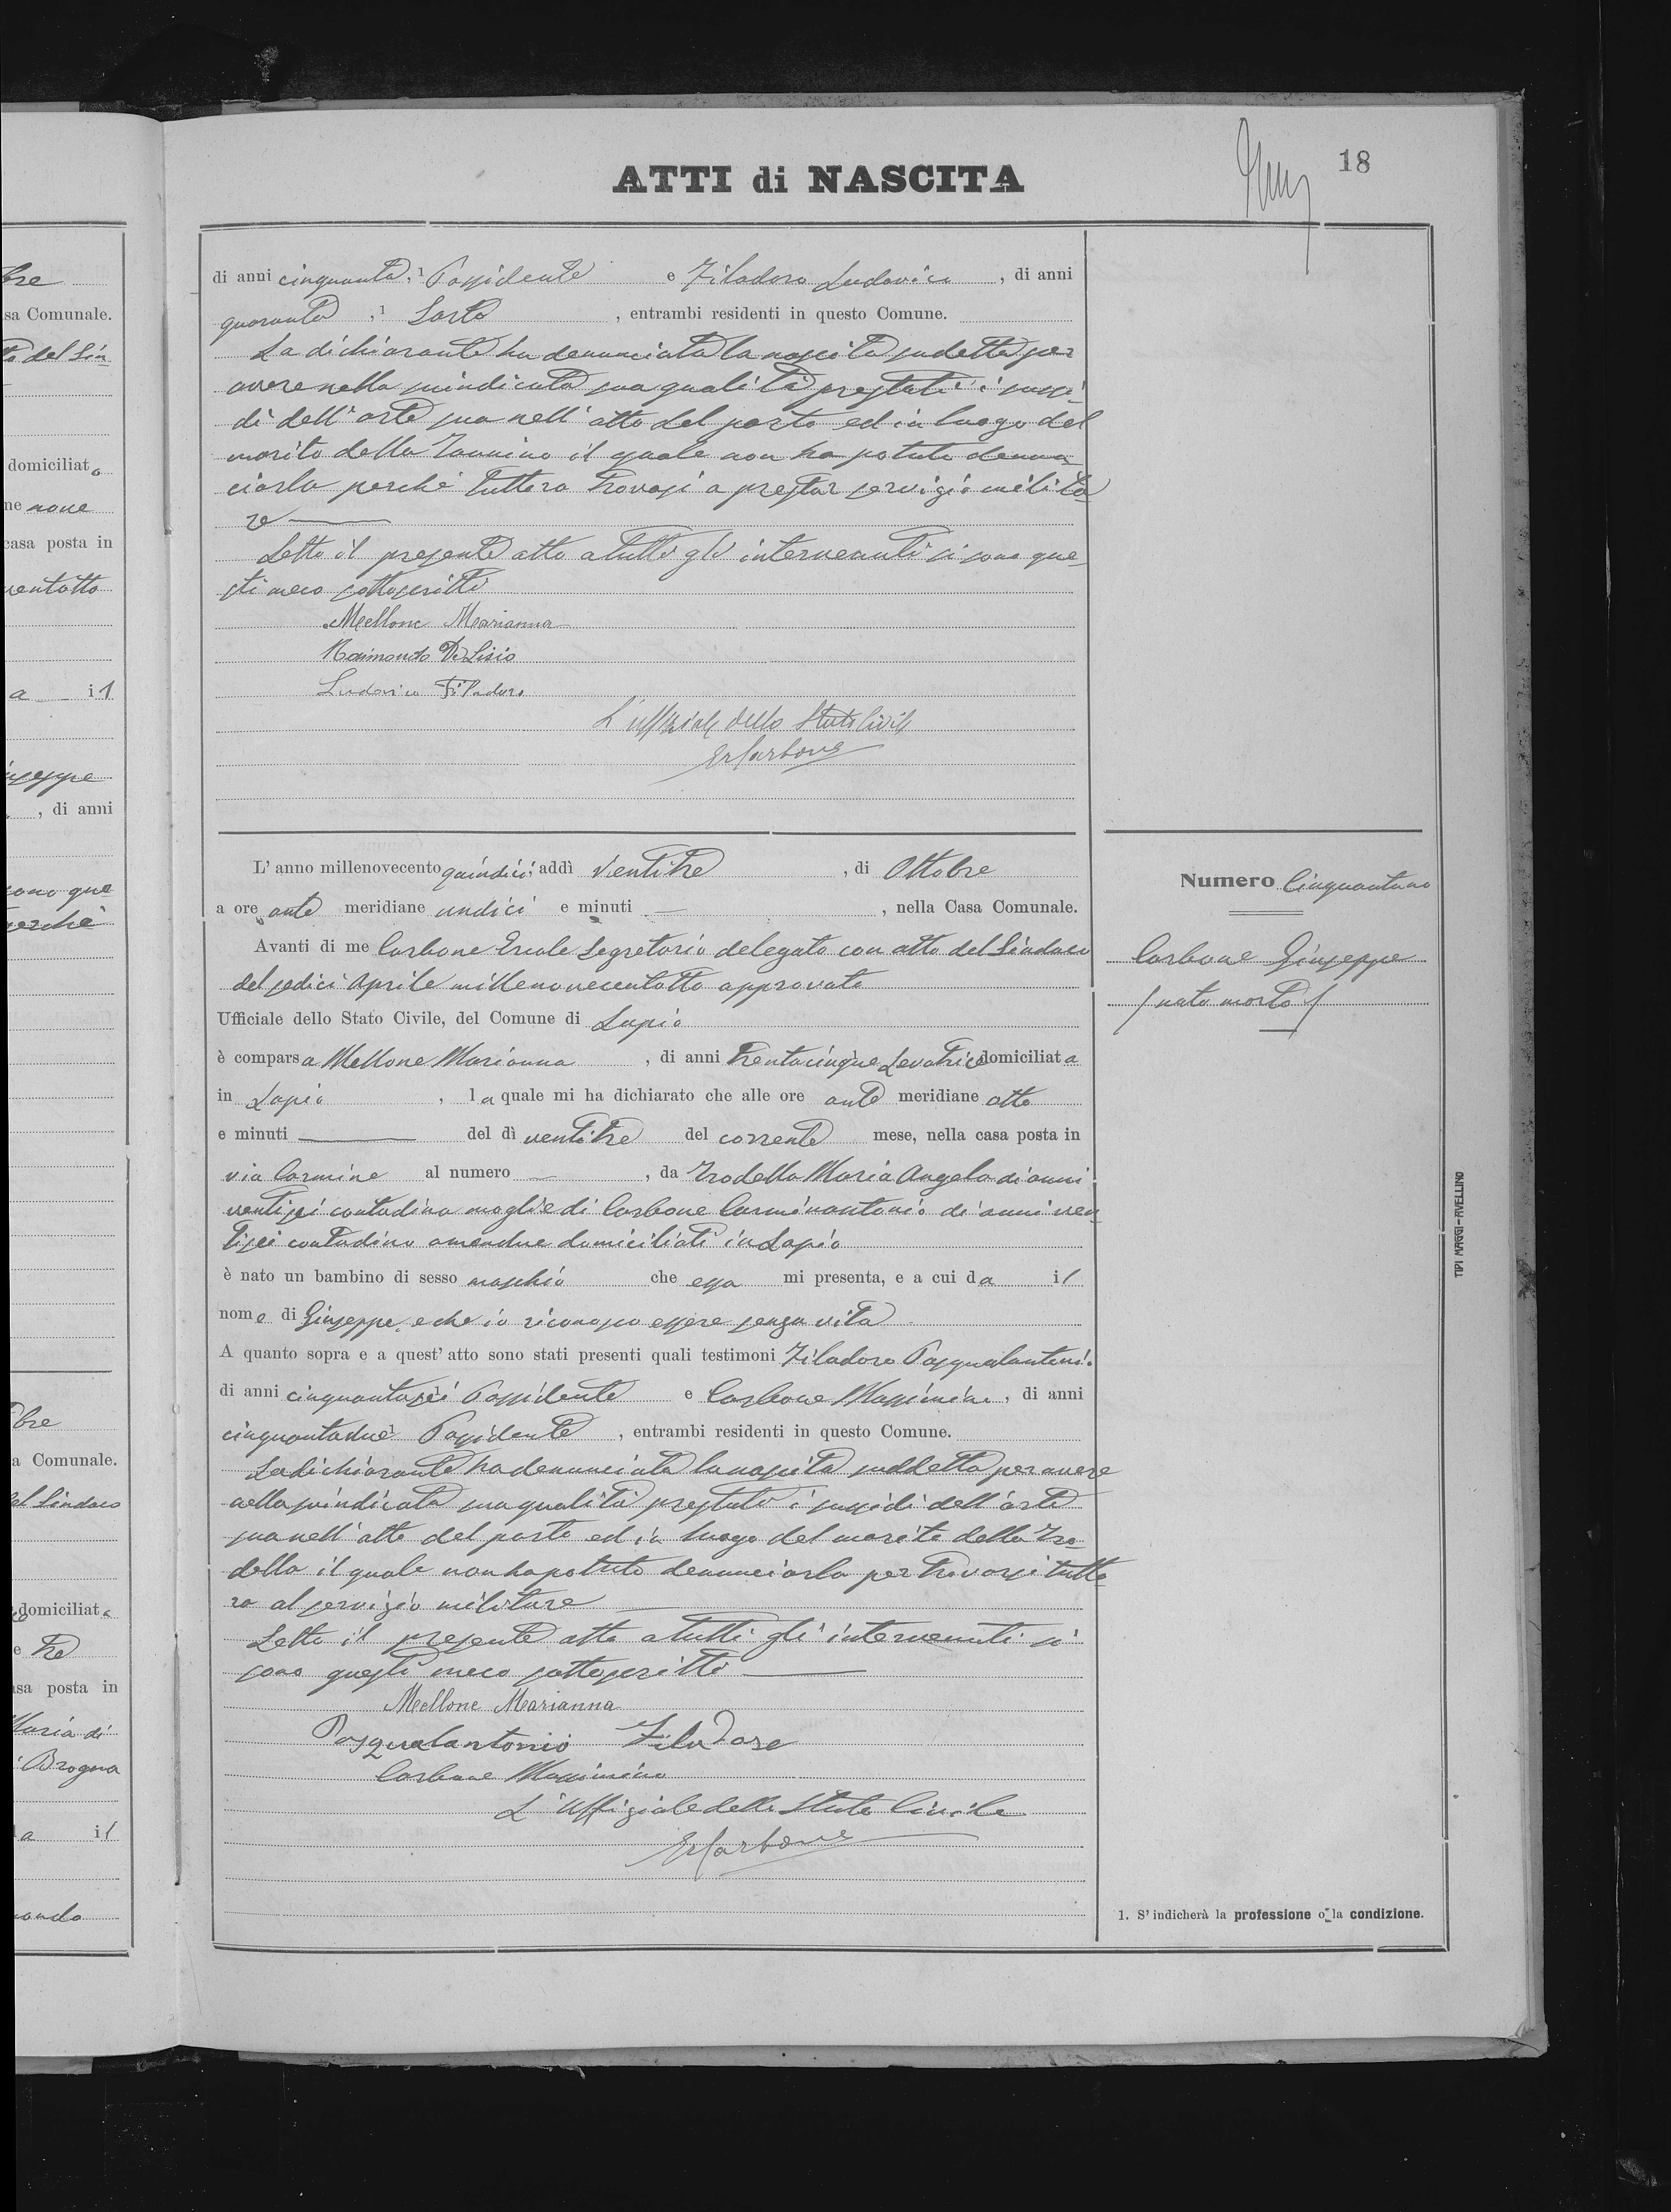 18
ATTI di NASCITA
di anni cinquanta, 1 Possidente e Filadoro Ludovico, di anni
quaranta, 1 Sarto, entrambi residenti in questo Comune.
La dichiarante ha denunciata la nascita sudetta per
avere nella suindicata sua qualità prestati i sussi-
di dell'arte sua nell'atto del parto ed in luogo del
marito della Iannino il quale non ha potuto denun-
ciarla perché tuttora trovasi a prestar servizio milita-
re
Letto il presente atto a tutti gli intervenuti si sono que-
sti meco sottoscritti
Mellone Marianna
Raimondo De Lisio
Ludovico Filadoro
L'uffiziale dello Stato Civile
ErCarbone
L'anno millenovecento quindici, addì ventitre, di Ottobre
a ore ante meridiane undici e minuti —, nella Casa Comunale.
Numero Cinquantuno
Avanti di me Carbone Ercole Segretario delegato con atto del Sindaco
del sedici Aprile millenovecentotto approvato
Carbone Giuseppe
(nato morto)
Ufficiale dello Stato Civile, del Comune di Lapio
è comparsa Mellone Marianna, di anni trentacinque Levatrice domiciliata
in Lapio, la quale mi ha dichiarato che alle ore ante meridiane otto
e minuti — del dì ventitre del corrente mese, nella casa posta in
via Carmine al numero —, da Trodella Maria Angela di anni
ventisei contadina moglie di Carbone Carminantonio di anni ven-
tisei contadino amendue domiciliati in Lapio
è nato un bambino di sesso maschio che essa mi presenta, e a cui da il
nome di Giuseppe, e che io riconosco essere senza vita
A quanto sopra e a quest'atto sono stati presenti quali testimoni Filadoro Pasqualantonio
di anni cinquantasei Possidente e Carbone Massimino, di anni
cinquantadue Possidente, entrambi residenti in questo Comune.
La dichiarante ha denunciata la nascita suddetta per avere
nella suindicata sua qualità prestato i sussidi dell'arte
sua nell'atto del parto ed in luogo del marito della Tro-
della il quale non ha potuto denunciarla per trovarsi tutto-
ra al servizio militare
Letto il presente atto a tutti gli intervenuti si
sono questi meco sottoscritti
Mellone Marianna
Pasqualantonio Filadoro
Carbone Massimino
L'Uffiziale dello Stato Civile
ErCarbone
1. S'indicherà la professione o la condizione.
TIPI MAGGI - AVELLINO